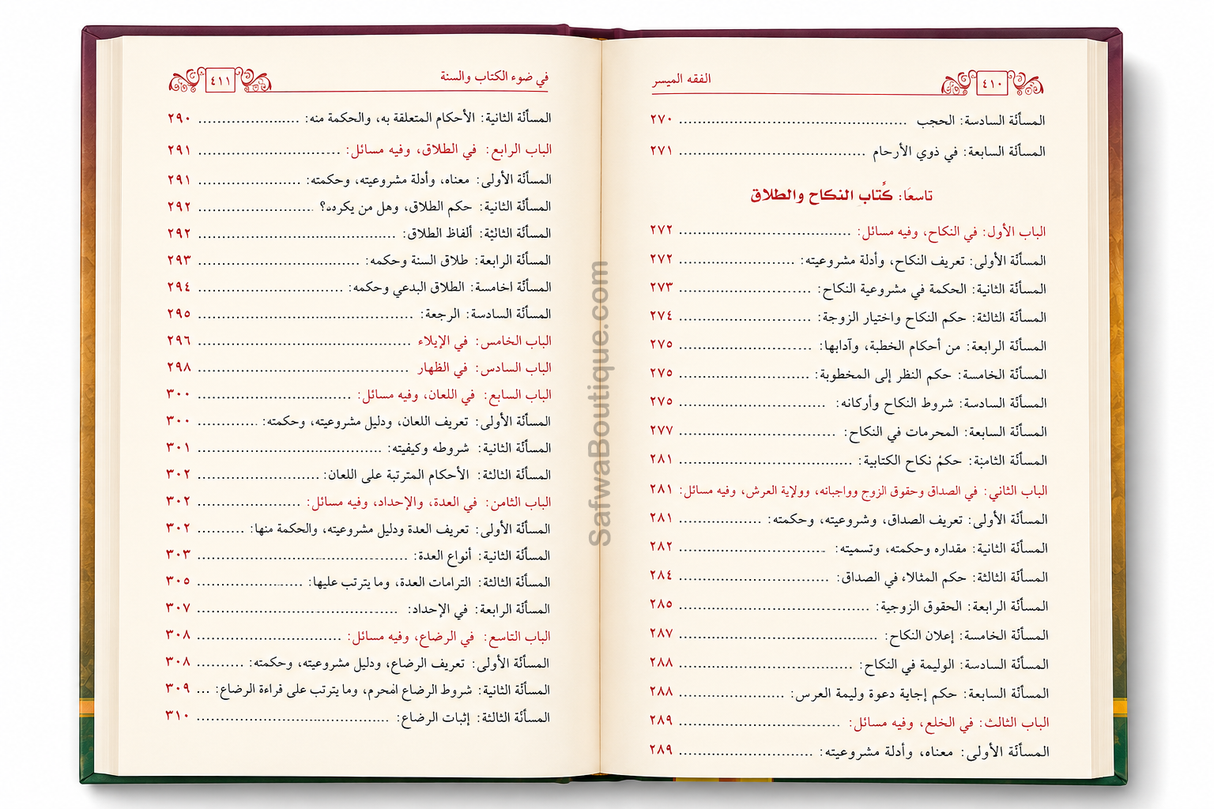 الفقه الميسر
٤١٠
المسألة السادسة: الحجب ........ ٢٧٠
المسألة السابعة: في ذوي الأرحام ........ ٢٧١
تاسعًا: كتاب النكاح والطلاق
الباب الأول: في النكاح، وفيه مسائل: ........ ٢٧٢
المسألة الأولى: تعريف النكاح، وأدلة مشروعيته: ........ ٢٧٢
المسألة الثانية: الحكمة في مشروعية النكاح: ........ ٢٧٣
المسألة الثالثة: حكم النكاح واختيار الزوجة: ........ ٢٧٤
المسألة الرابعة: من أحكام الخطبة، وآدابها: ........ ٢٧٥
المسألة الخامسة: حكم النظر إلى المخطوبة: ........ ٢٧٥
المسألة السادسة: شروط النكاح وأركانه: ........ ٢٧٥
المسألة السابعة: المحرمات في النكاح: ........ ٢٧٧
المسألة الثامنة: حكم نكاح الكتابية: ........ ٢٨١
الباب الثاني: في الصداق وحقوق الزوج وواجباته، وولاية العرش، وفيه مسائل: ٢٨١
المسألة الأولى: تعريف الصداق، وشروعيته، وحكمته: ........ ٢٨١
المسألة الثانية: مقداره وحكمته، وتسميته: ........ ٢٨٢
المسألة الثالثة: حكم المثالاء في الصداق: ........ ٢٨٤
المسألة الرابعة: الحقوق الزوجية: ........ ٢٨٥
المسألة الخامسة: إعلان النكاح: ........ ٢٨٧
المسألة السادسة: الوليمة في النكاح: ........ ٢٨٨
المسألة السابعة: حكم إجاية دعوة وليمة العرس: ........ ٢٨٨
الباب الثالث: في الخلع، وفيه مسائل: ........ ٢٨٩
المسألة الأولى: معناه، وأدلة مشروعيته: ........ ٢٨٩
في ضوء الكتاب والسنة
٤١١
المسألة الثانية: الأحكام المتعلقة به، والحكمة منه: ........ ٢٩٠
الباب الرابع: في الطلاق، وفيه مسائل: ........ ٢٩١
المسألة الأولى: معناه، وأدلة مشروعيته، وحكمته: ........ ٢٩١
المسألة الثانية: حكم الطلاق، وهل من يكرده؟ ........ ٢٩٢
المسألة الثالثة: ألفاظ الطلاق: ........ ٢٩٢
المسألة الرابعة: طلاق السنة وحكمه: ........ ٢٩٣
المسألة اخامسة: الطلاق البدعي وحكمه: ........ ٢٩٤
المسألة السادسة: الرجعة: ........ ٢٩٥
الباب الخامس: في الإيلاء ........ ٢٩٦
الباب السادس: في الظهار ........ ٢٩٨
الباب السابع: في اللعان، وفيه مسائل: ........ ٣٠٠
المسألة الأولى: تعريف اللعان، ودليل مشروعيته، وحكمته: ........ ٣٠٠
المسألة الثانية: شروطه وكيفيته: ........ ٣٠١
المسألة الثالثة: الأحكام المترتبة على اللعان: ........ ٣٠٢
الباب الثامن: في العدة، والإحداد، وفيه مسائل: ........ ٣٠٢
المسألة الأولى: تعريف العدة ودليل مشروعيته، والحكمة منها: ........ ٣٠٢
المسألة الثانية: أنواع العدة: ........ ٣٠٣
المسألة الثالثة: الترامات العدة، وما يترتب عليها: ........ ٣٠٥
المسألة الرابعة: في الإحداد: ........ ٣٠٧
الباب التاسع: في الرضاع، وفيه مسائل: ........ ٣٠٨
المسألة الأولى: تعريف الرضاع، ودليل مشروعيته، وحكمته: ........ ٣٠٨
المسألة الثانية: شروط الرضاع المحرم، وما يترتب على قراءة الرضاع: ... ٣٠٩
المسألة الثالثة: إثبات الرضاع: ........ ٣١٠
SafwaBoutique.com